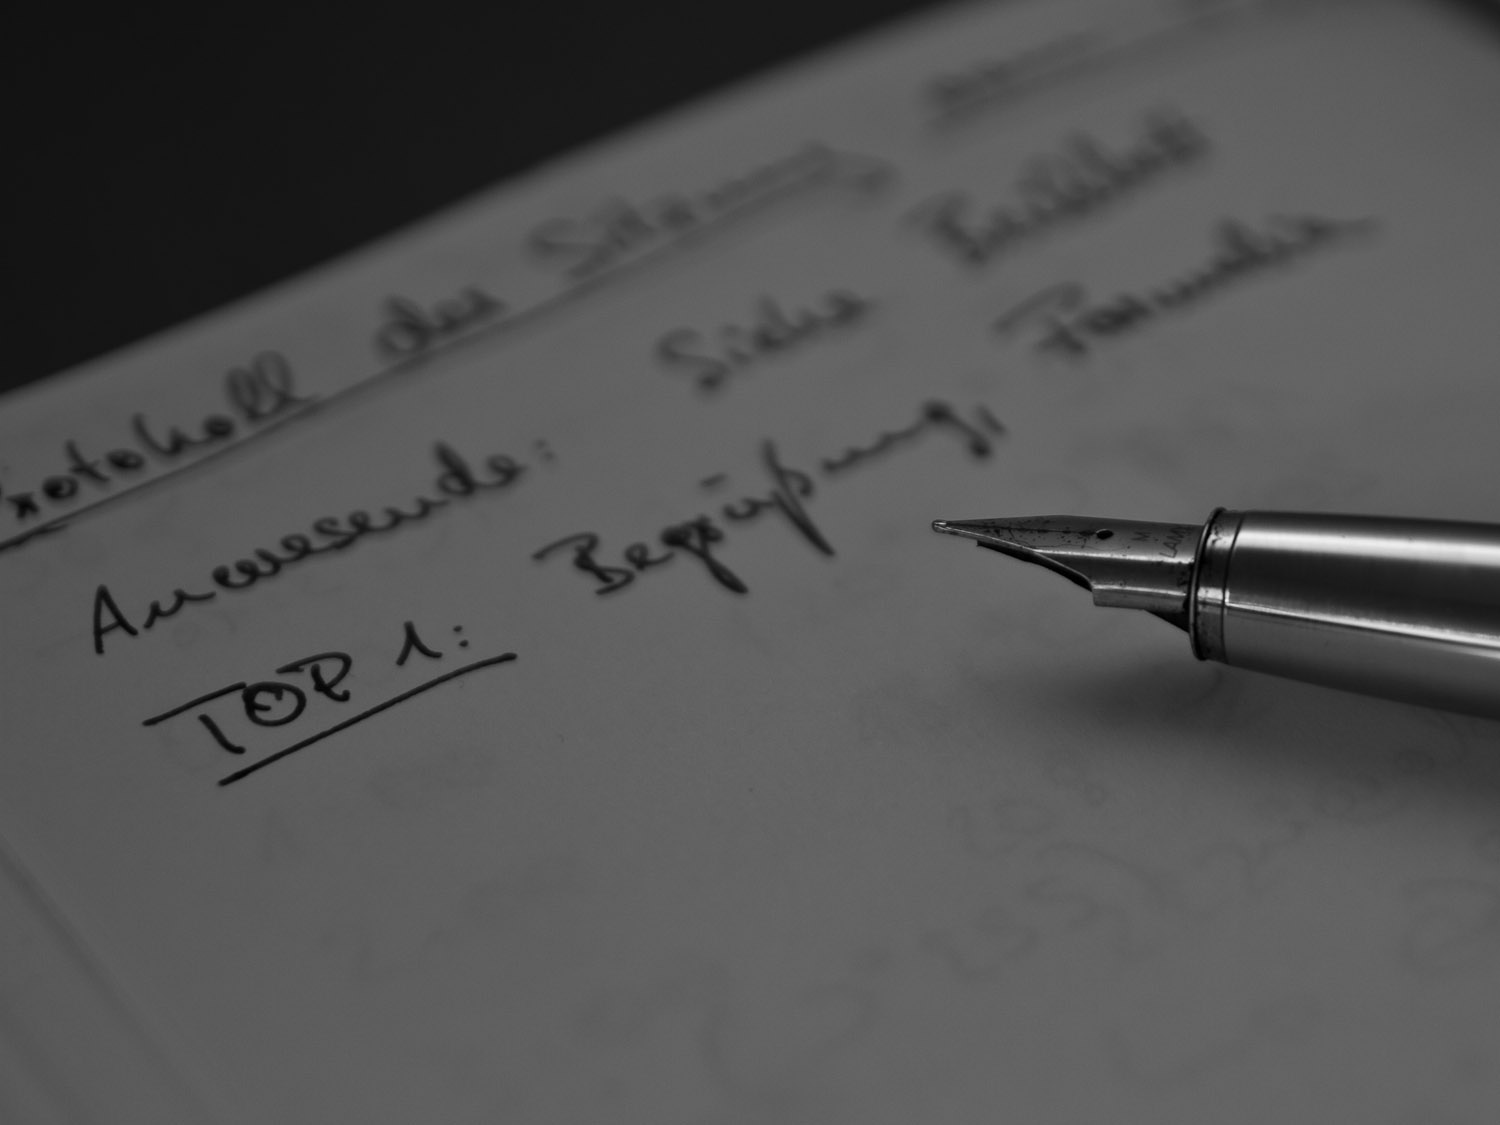 Protokoll der Sitzung
Anwesende: Siehe Beiblatt
TOP 1: Begrüßung, Formalia
M
LAMY